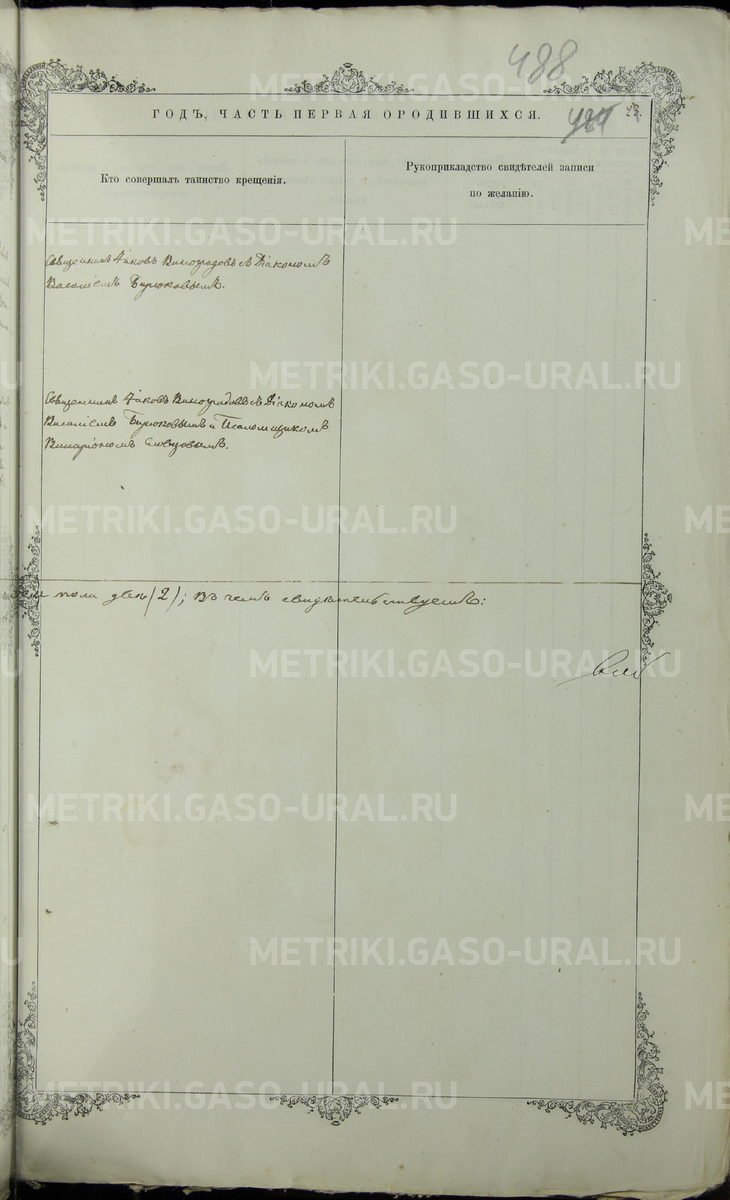 488
484 23.
ГОДЪ, ЧАСТЬ ПЕРВАЯ О РОДИВШИХСЯ.
Кто совершалъ таинство крещенія.
Рукоприкладство свидѣтелей записи
по желанію.
Священникъ Іаковъ Виноградовъ съ Діакономъ
Василіемъ Бирюковымъ.
Священникъ Іаковъ Виноградовъ съ Діакономъ
Василіемъ Бирюковымъ и Псаломщикомъ
Иларіономъ Словцовымъ.
пола два (2); въ чемъ свидѣтельствуемъ:
METRIKI.GASO-URAL.RU